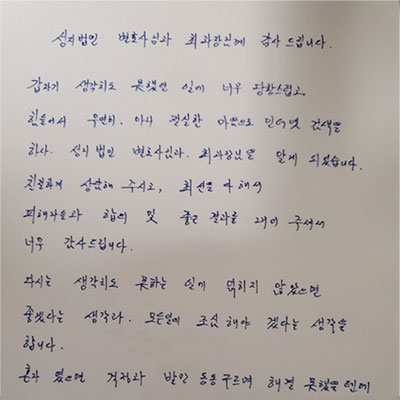 심지법인 변호사님과 최과장님께 감사 드립니다.
갑자기 생각치도 못했던 일에 너무 당황스럽고,
힘들어서 우연히. 아니 절실한 마음으로 인터넷 검색을
하다. 심지 법인 변호사님과. 최과장님을 알게 되었습니다.
친절하게 상담해 주시고, 최선을 다해서
피해자들과 합의 및 좋은 결과를 내어 주셔서
너무 감사드립니다.
다시는 생각치도 못하는 일에 엮히지 않았으면
좋겠다는 생각과. 모든일에 조심해야 겠다는 생각을
합니다.
혼자 였으면 걱정과 발만 동동구르며 해결 못했을텐데